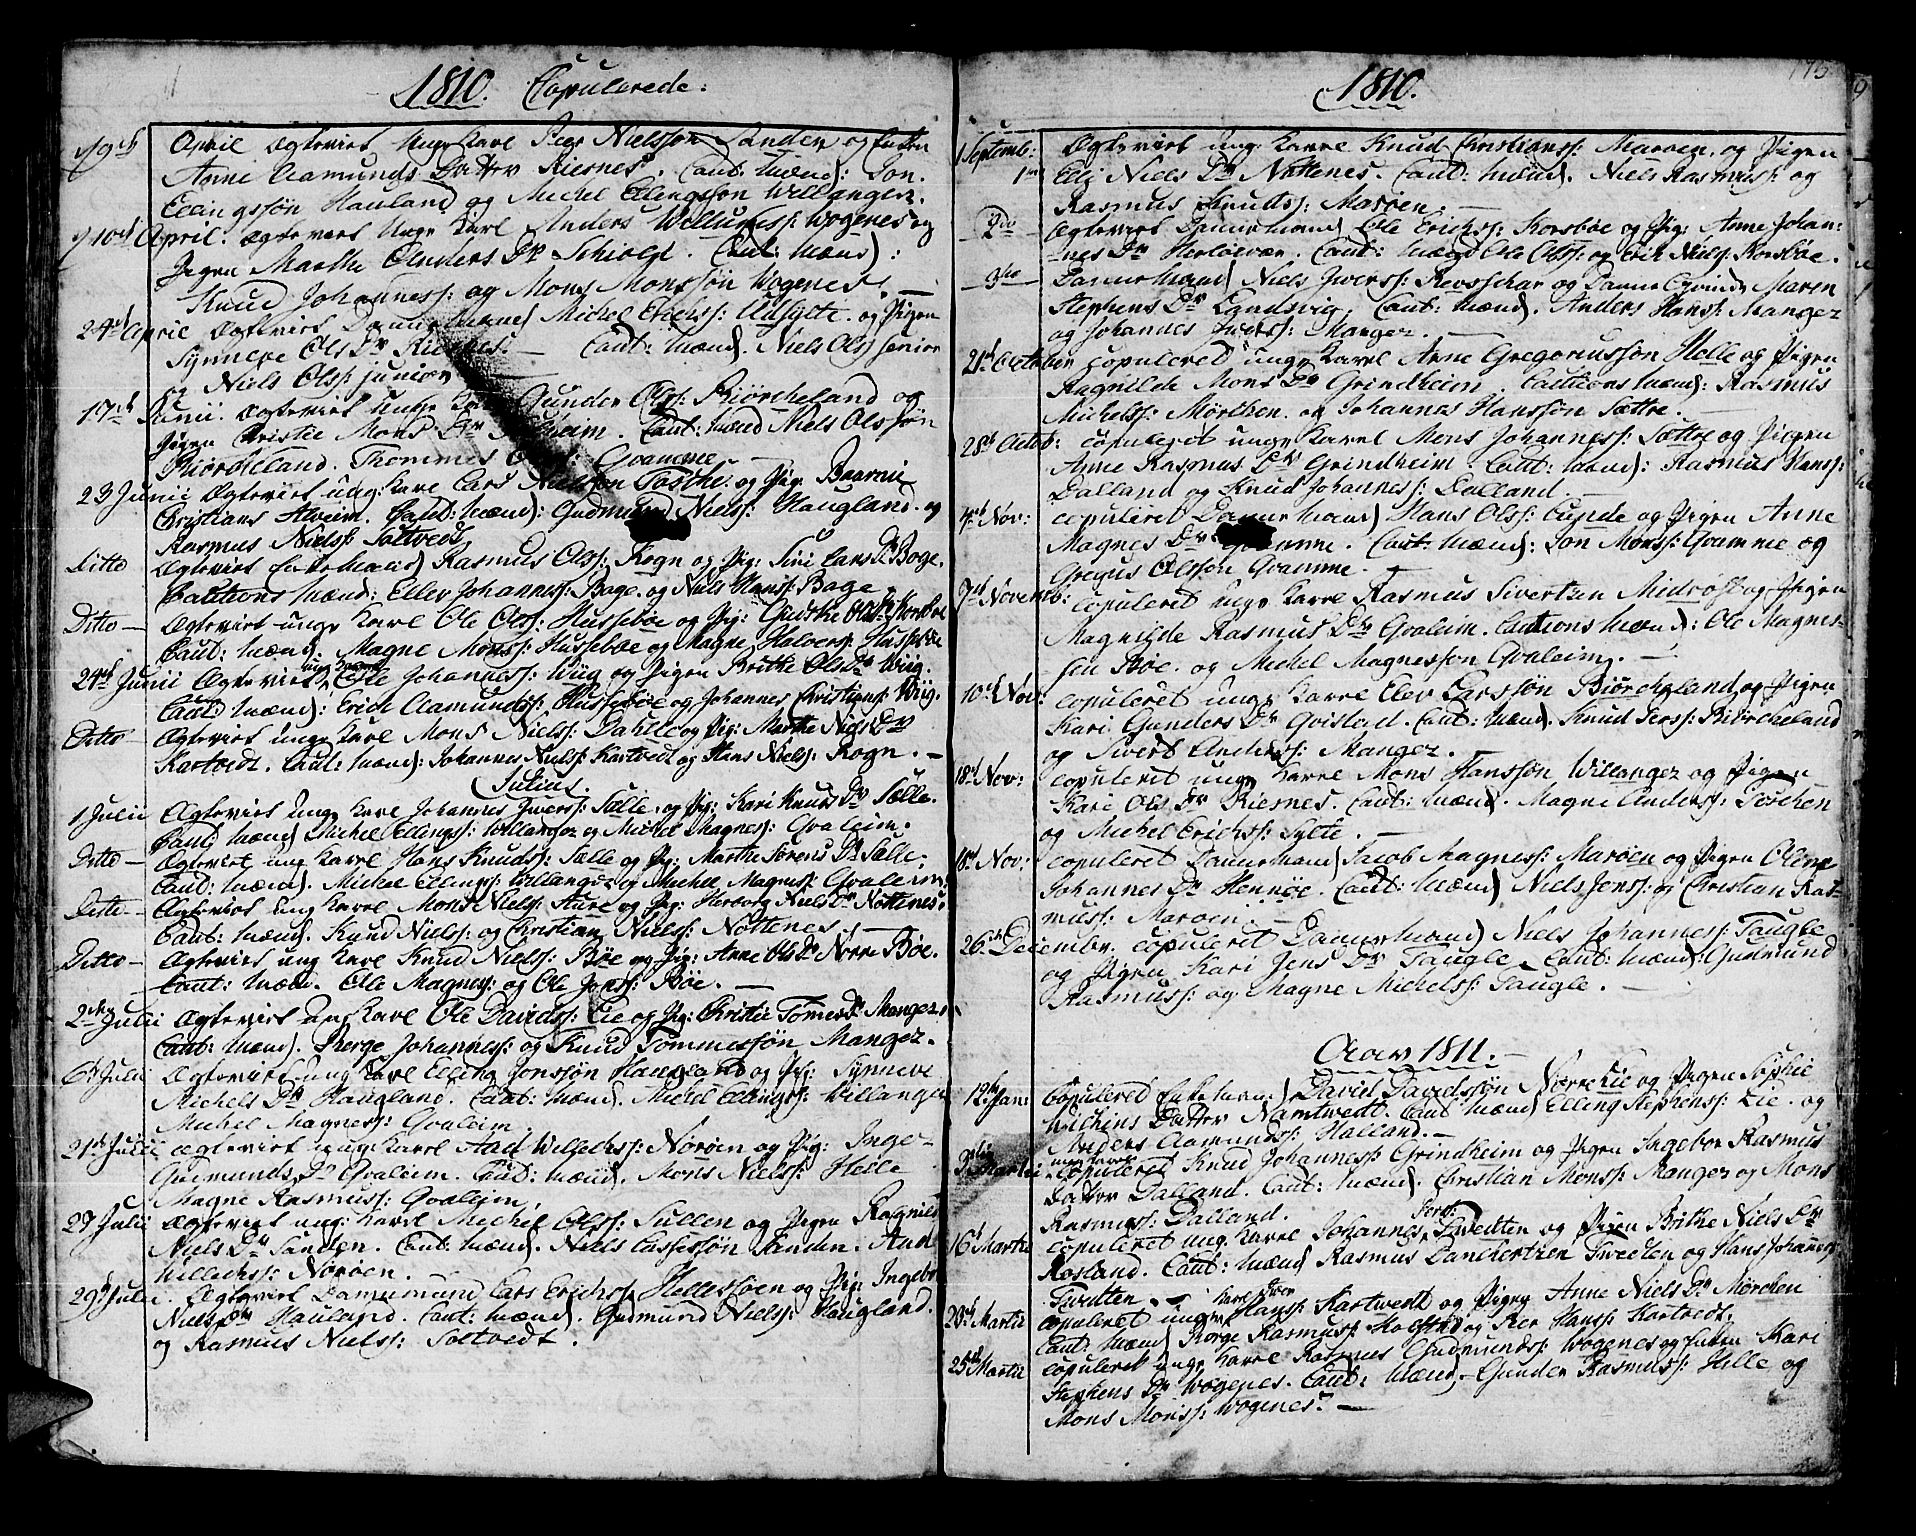 1810. Copulerede:
d/9de April Ægteviet Unge Karl Peer Nielssøn Sanden og Enken
Anne Aamunds Datter Risnes. Caut: Mænd: Jon
Ellingssøn Hauland og Michel Ellingssøn Willanger.
10de April. Ægteviet Unge Karl Anders Willumss: Wogenes og
Pigen Marthe Anders Dr Schiold. Caut: Mænd:
Knud Johanness: og Mons Monssøn Wogenes. —
24de April Ægteviet Dannemand Michel Erichss: og Pigen
Synneve Ols Dr Risnes. — Caut: Mænd. Niels Olss senior
og Niels Olss: junior
17de Junii. Ægteviet unge Karl Gunder Olss: Biørcheland og
Pigen Christie Mons Dr Caut: Mænd Niels Olssøn
Biørcheland. Thommes Gvamme. —
23 Junii Ægteviet ung: Karl Lars Nielssøn Toske og Pig: Baaroni
Christians Alveim. Caut: Mænd: Gudmund Nielss: Haugland og
Rasmus Nielss: Soltvedt.
Ditto Ægteviet Enkemand Rasmus Olss: Rogn og Pig: Siri Lars Dr Boge.
Cautions Mænd: Ellev Johanness: Boge. og Niels Hanss: Boge
Ditto — Ægteviet unge Karl Ole Olss: Hussebøe og Pig: Ols Dr Korsbøe
Caut: Mænd. Magne Monss: Hussebøe og Magne Halvorss: Hussebøe
24de Junii Ægteviet ung Karl Johanness: Wiig og Pigen Brithe Ols Dr Wiig.
Caut Mænd: Erich Aamundss: Hussebøe og Johannes Christianss: Wiig.
Ditto — Ægteviet unge Karl Mons Nielss: Dahle og Pig: Marthe Niels Dr
Kartvedt. Caut: Mænd: Johannes Nielss: Kartvedt og Hans Nielss: Rogn. —
Julius.
1 Julii Ægteviet unge Karl Johannes Iverss: Sælle. og Pig: Kari Knuds Dr Sælle.
Caut: Mænd Michel Ellingss: Willanger og Michel Magness: Gvaleim.
Ditto — Ægteviet ung Karl Hans Knudss: Sælle og Pig: Marthe Sørens Dr Sælle.
Caut: Mænd. Michel Ellingss: Willanger og Michel Magness: Gvaleim.
Ditto — Ægteviet ung Karl Mons Nielss: Aure og Pig: Herborg Niels Dr Nøttenes.
Caut: Mænd. Knud Nielss: og Christian Nielss: Nøttenes. —
Ditto — Ægteviet ung Karl Knud Nielss: Bøe og Pig: Anne Ols Dr Norre Bøe.
Caut: Mænd. Ole Magness: og Ole Jonss: Bøe. —
2den Julii Ægteviet Ung Karl Ole Davidss: Lie og Pig: Christie Tomes Dr Manger.
Caut: Mænd. Børge Johanness: og Knud Tommessøn Manger.
6te Julii Ægteviet ung Karl Elling Jonssøn Haugland og Pig: Synneve
Michels Dr Haugland. Caut: Mænd. Michel Ellingss: Willanger
Michel Magness: Gvaleim.
21de Julii Ægteviet ung Karl Aad Willechss: Norøen og Pig: Inge-
Gudmunds Dr Gvaleim. Caut: Mænd. Mons Nielss: Helle
Magne Rasmuss: Gvaleim.
27 Julii Ægteviet ung: Karl Michel Olss: Sullen og Pigen Ragnild
Niels Dr Sanden. Caut: Mænd. Niels Lassessøn Sanden. Aad
Willechss: Norøen.
29de Julii. Ægteviet Dannemand Lars Erichss Hellesøen og Pig: Ingebor
Niels Dr Hauland. Caut: Mænd. Gudmund Nielss: Haugland.
og Rasmus Nielss: Soltvedt.
1810.
1 Septemb: Ægteviet ung Karl Knud Christianss: Marøen. og Pigen
Eli Niels Dr Nøttenes. Caut: Mænd. Niels Rasmuss: og
Rasmus Knudss: Marøen. —
2de Ægteviet Dannemand Ole Erichss: Korsbøe og Pig: Anne Johan-
nes Dr Herløevær. Caut: Mænd Ole Olss: og Erik Nielss: Korsbøe.
3die Dannemand Niels Iverss: og Danne Qvinde Maren
Stephens Dr Landsvig. Caut: Mænd. Anders Hanss: Manger
og Johannes Iverss: Manger. —
21de October copuleret unge Karl Arne Gregoriussøn Helle og Pigen
Ragnilde Mons Dr Grindheim. Cautions Mænd: Rasmus
Michelss: Mørchen. og Johannes Hanssøn Sættre. —
28de Octob: copuleret unge Karl Mons Johanness: Sættre og Pigen
Anne Rasmus Dr Grindheim. Caut: Mænd: Rasmus Hanss:
Dalland og Knud Johanness: Dalland. —
4de Nov: copuleret Dannemand Hans Olss: Lunde og Pigen Anne
Magnes Dr Gvamme. Caut: Mænd: Jon Monss: Gvamme og
Gregus Olssøn Gvamme. —
7de Novemb: copuleret unge Karl Rasmus Sivertzen Midrøe og Pigen
Magnilde Rasmus Dr Gvaleim. Cautions Mænd: Ole Magnes-
søn Bøe. og Michel Magnessøn Gvaleim. —
10de Nov: copuleret unge Karl Elev Larssøn Biørcheland og Pigen
Kari Gunders Dr Gvistad. Caut: Mænd. Knud Perss: Biørcheland
og Sivert Anderss: Manger.
18de Nov: copuleret unge Karl Mons Hanssøn Willanger og Pigen
Kari Ols Dr Risnes. Caut: Mænd. Magne Anderss: Torschen
og Michel Erichss: Sylte. —
18de Nov: copuleret Dannemand Jacob Magness: Marøen og Pigen Oline
Johannes Dr Hennøe. Caut: Mænd Niels Jenss: og Christian Ras-
muss: Marøen. —
26de December. copuleret Dannemand Niels Johanness: Taugle
og Pigen Kari Jens Dr Taugle. Caut: Mænd: Gudmund
Rasmuss: og Magne Michelss: Taugle. —
Aar 1811. —
12te Jan: Copulered Enkemand David Davidssøn Nørre Lie og Pigen Sophie
Datter Namtvedt. Caut Mænd Elling Stephenss: Lie. og
Anders Aamundss: Halland. —
3die Martii copuleret unge Karl Knud Johanness: Grindheim og Pigen Ingebor Rasmus
Datter Dalland. Caut: Mænd. Christian Monss: Manger og Mons
Rasmuss: Dalland.
16 Martii copuleret ung Karl Johannes Perss: Tvedten og Pigen Brithe Niels Dr
Rosland. Caut: Mænd Rasmus Danchertzen Tvedten og Hans Johanness
Tvedten. —
20de Martii copuleret unge Karl Iver Hanss: Kartwedt og Pigen Anne Niels Dr Mørchen
Caut: Mænd Børge Rasmuss: og Per Hanss: Kartvedt.
25de Martii copuleret unge Karl Rasmus Gudmundss: Wogenes og Enken Kari
Stephens Dr Wogenes. Caut: Mænd. Gunder Rasmuss: Helle og
Mons Monss: Wogenes. —